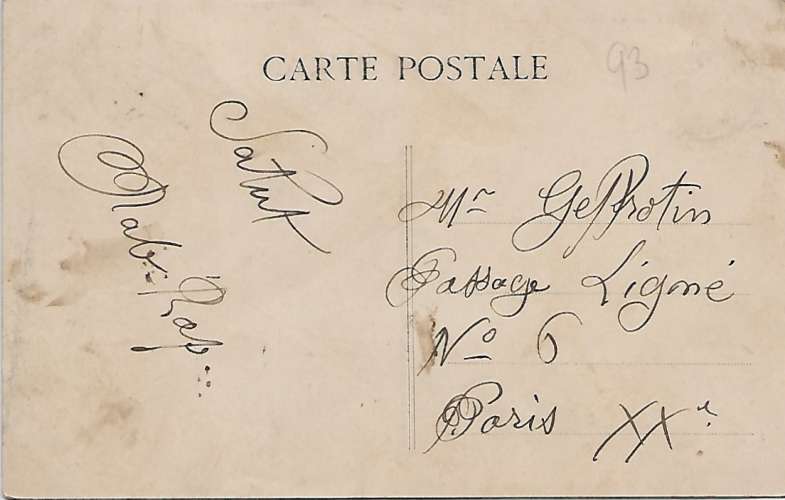 CARTE POSTALE
93
Salut
Mr Geffrotin
Passage Ligné
No 6
Paris XXe